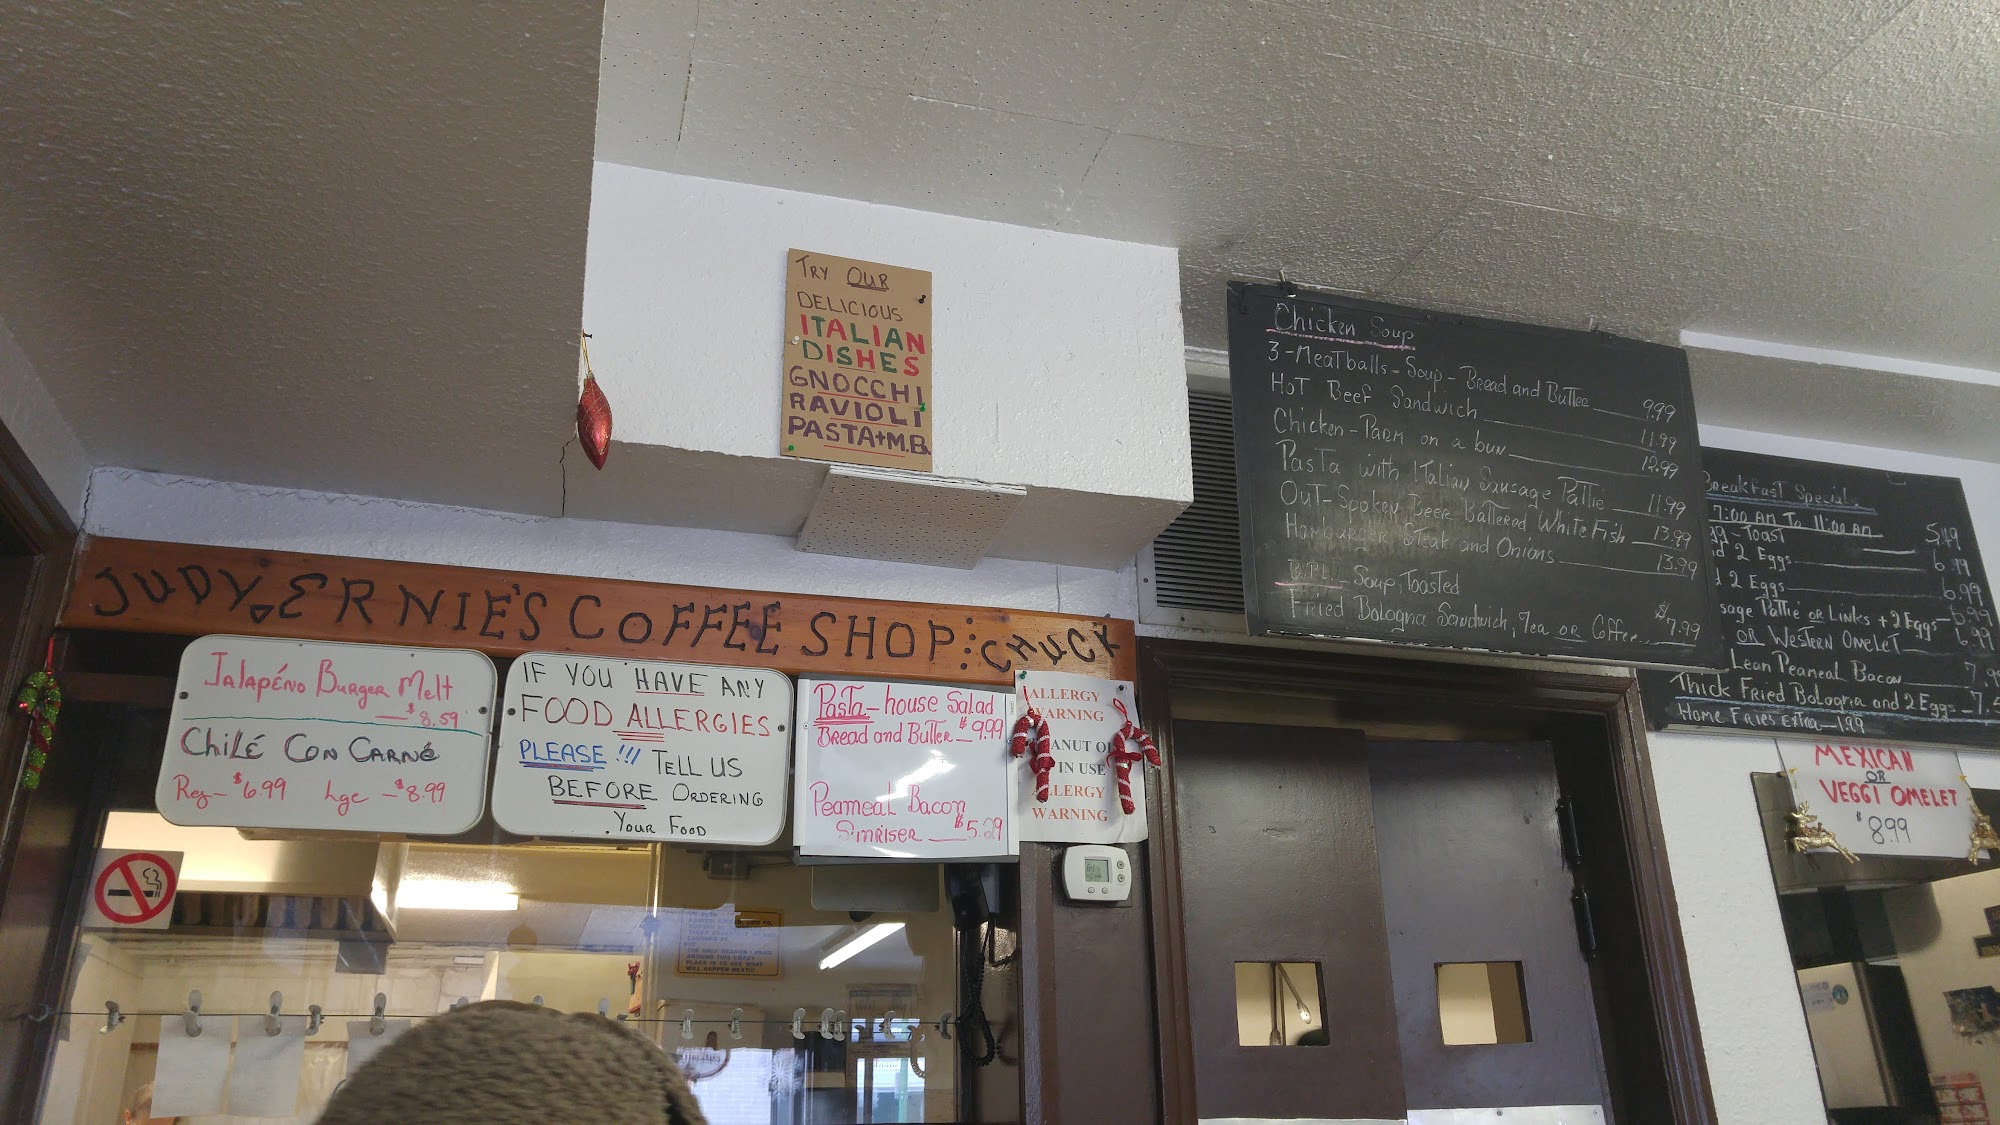 TRY OUR
DELICIOUS
ITALIAN
DISHES
GNOCCHI
RAVIOLI
PASTA+M.B.
JUDY & ERNIE'S COFFEE SHOP CHUCK
Jalapéno Burger Melt
$8.59
Chilé Con Carné
Reg - $6.99 Lge - $8.99
IF YOU HAVE ANY
FOOD ALLERGIES
PLEASE!!! TELL US
BEFORE ORDERING
YOUR FOOD
Pasta - house Salad
Bread and Butter - $9.99
Peameal Bacon
$5.29
ALLERGY
WARNING
IN USE
ALLERGY
WARNING
Chicken Soup
3-Meatballs - Soup - Bread and Butter 9.99
Hot Beef Sandwich 11.99
Chicken-Parm on a bun 12.99
Pasta with Italian Sausage Pattie 11.99
Out-Spoken Beer Battered White Fish 13.99
Hamburger Steak and Onions 13.99
Soup, Toasted
Fried Bologna Sandwich, Tea or Coffee $7.99
Breakfast Specials
7:00 AM To 11:00 AM
Toast 5.49
2 Eggs 6.99
2 Eggs 6.99
Pattie or Links + 2 Eggs 6.99
or Western Omelet 6.99
Lean Peameal Bacon
Thick Fried Bologna and 2 Eggs
Home Fries Extra 1.99
MEXICAN
OR
VEGGI OMELET
$8.99